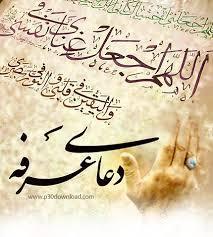 اللهم اجعل غنای فی نفسی
والیقین فی قلبی والنور فی بصری
دعای عرفه
www.p30download.com